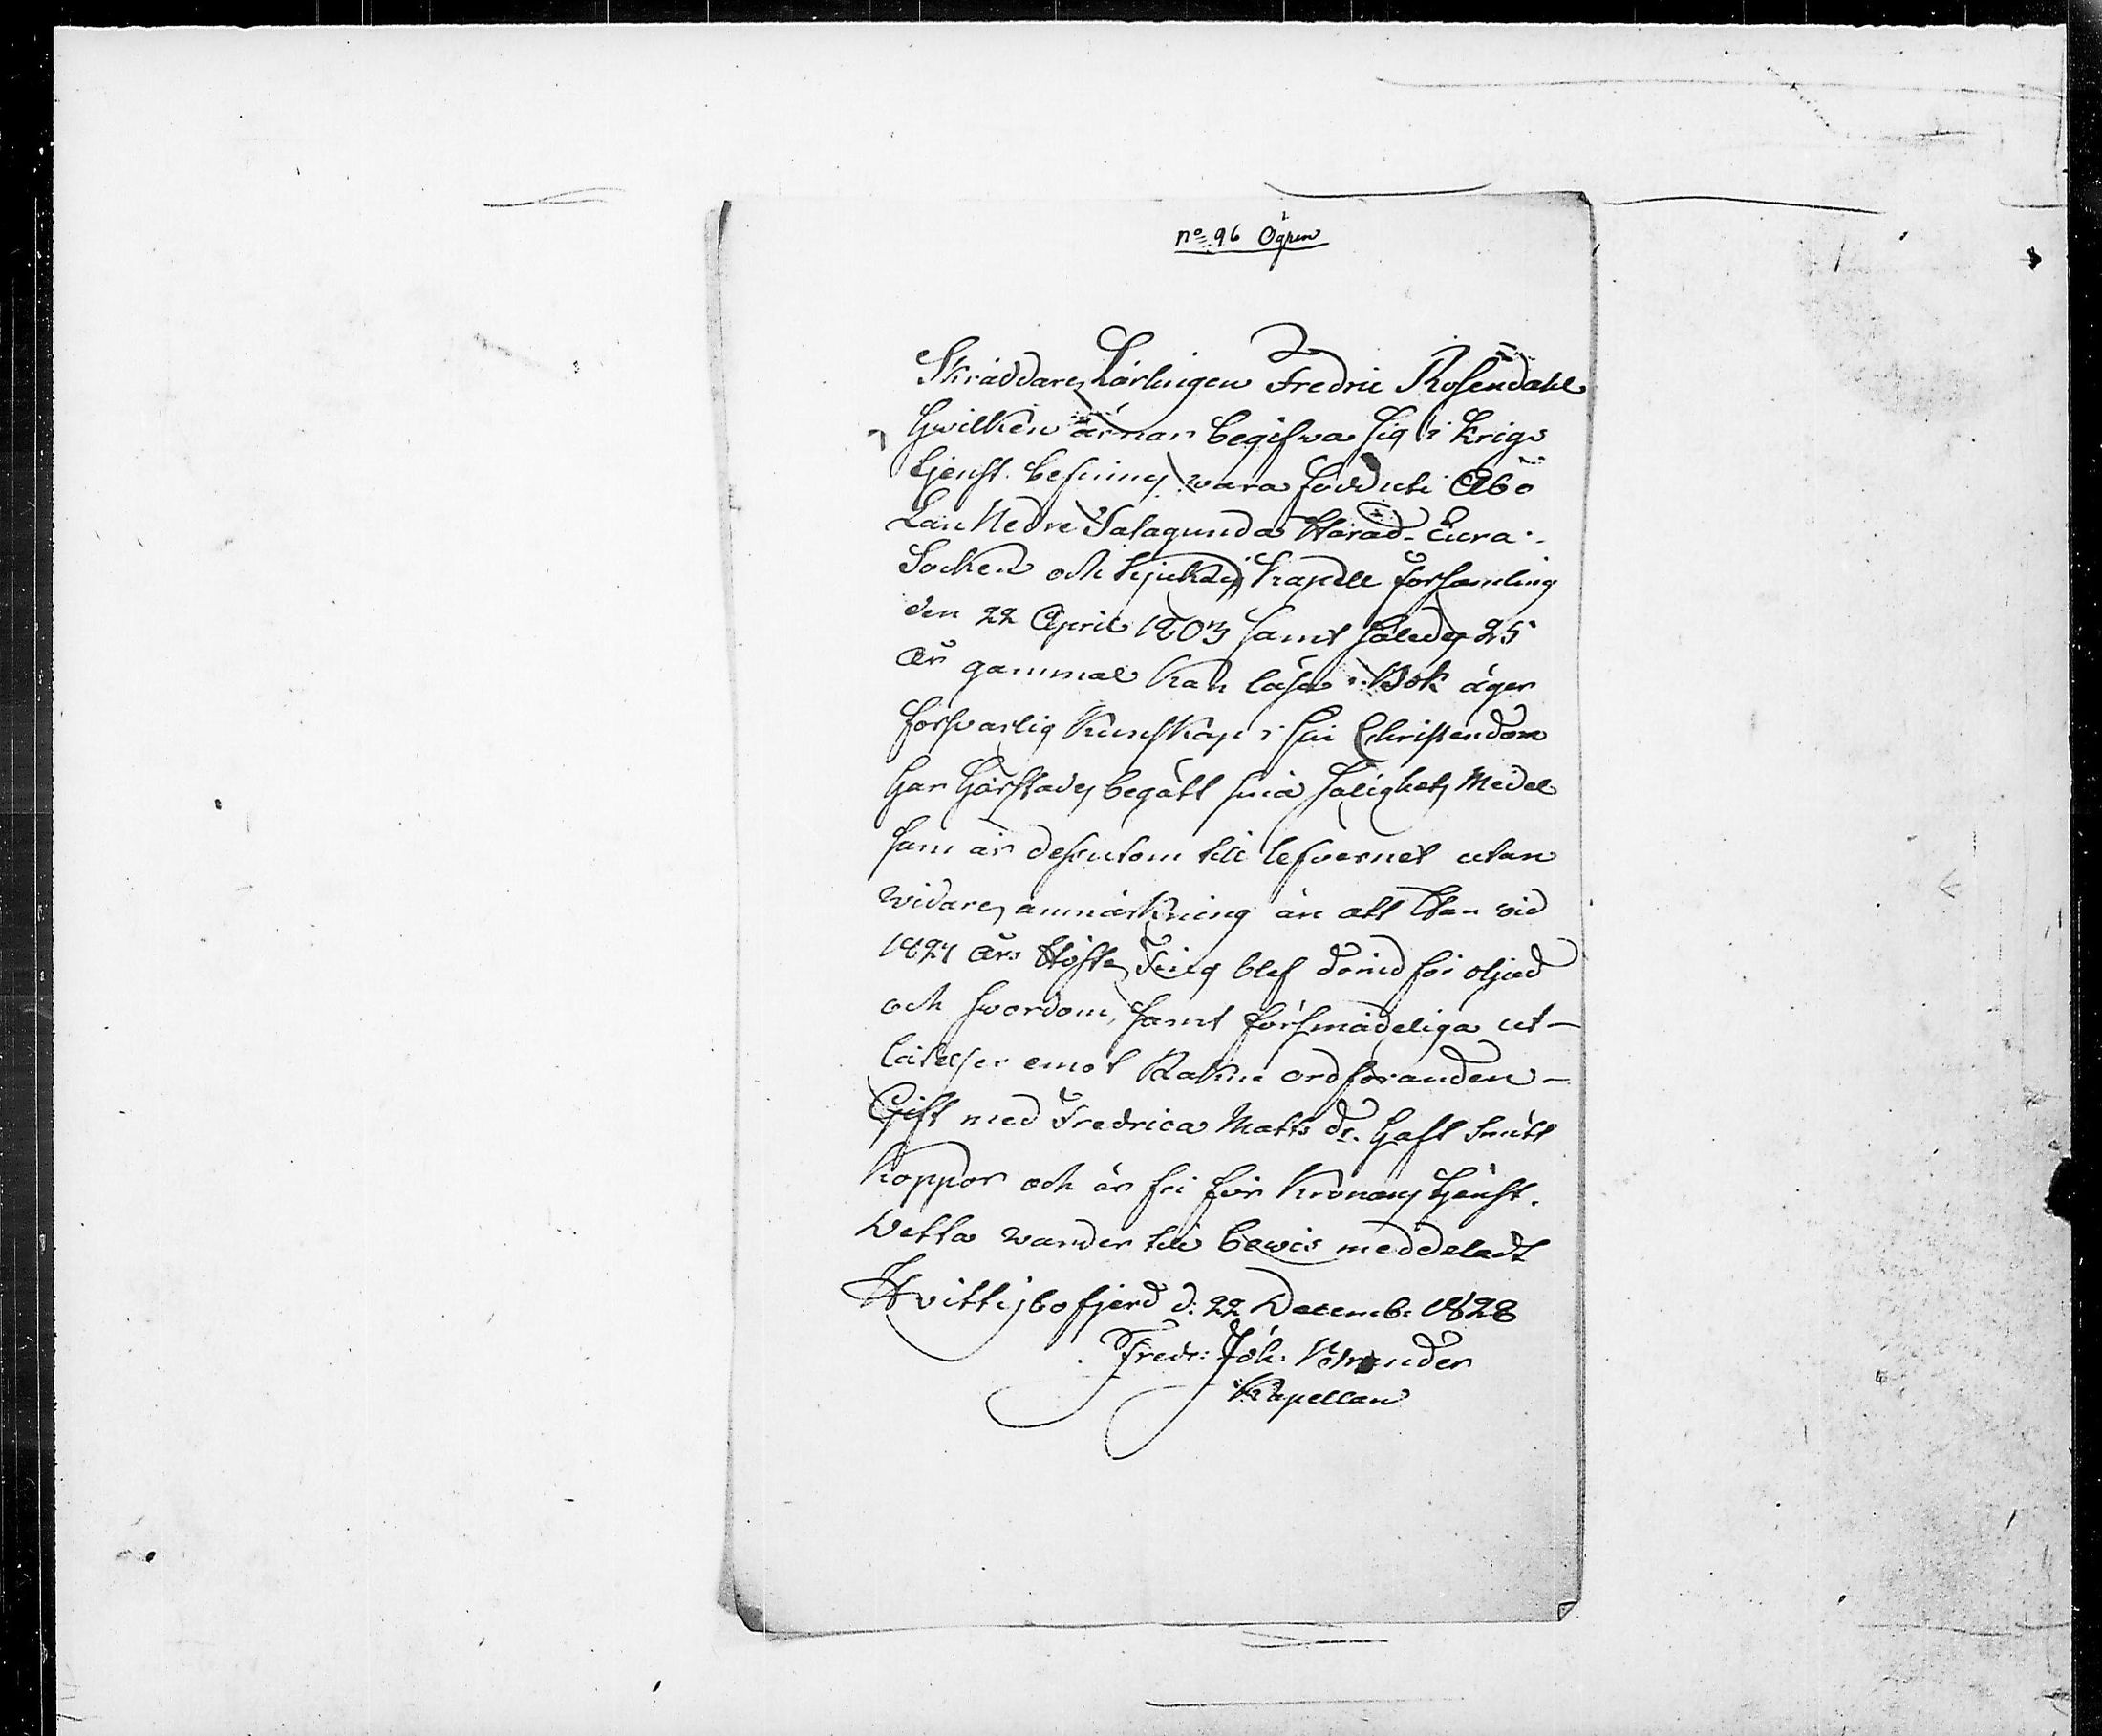 No 96 Ögren
Skräddare Lärlingen Fredric Rosendahl
Hwilken ärnar begifwa sig i Krigs
tjenst befinnes wara född uti Åbo
Län Nedre Satagunda Härad Eura
Socken och Kjukais Kapell församling
den 22 April 1803 samt således 25
år gammal kan läsa i Bok äger
försvarlig Kunskap i sin Christendom
har Höstades begått sina Salighets Medel
Samt är dessutom till lefvernet utan
widare anmärkning än att Han vid
1827 års Höste Ting blef dömd för oljud
och svordom, samt försmädeliga ut-
låtelser emot Rättens ordföranden -
Gift med Fredrica Matts dr. haft Smått
Koppor och är fri för Kronans tjenst.
Detta warder till bewis meddeladt
Hvittisbofjerd d: 22 Decemb: 1828
Fredr: Joh:
Kapellan